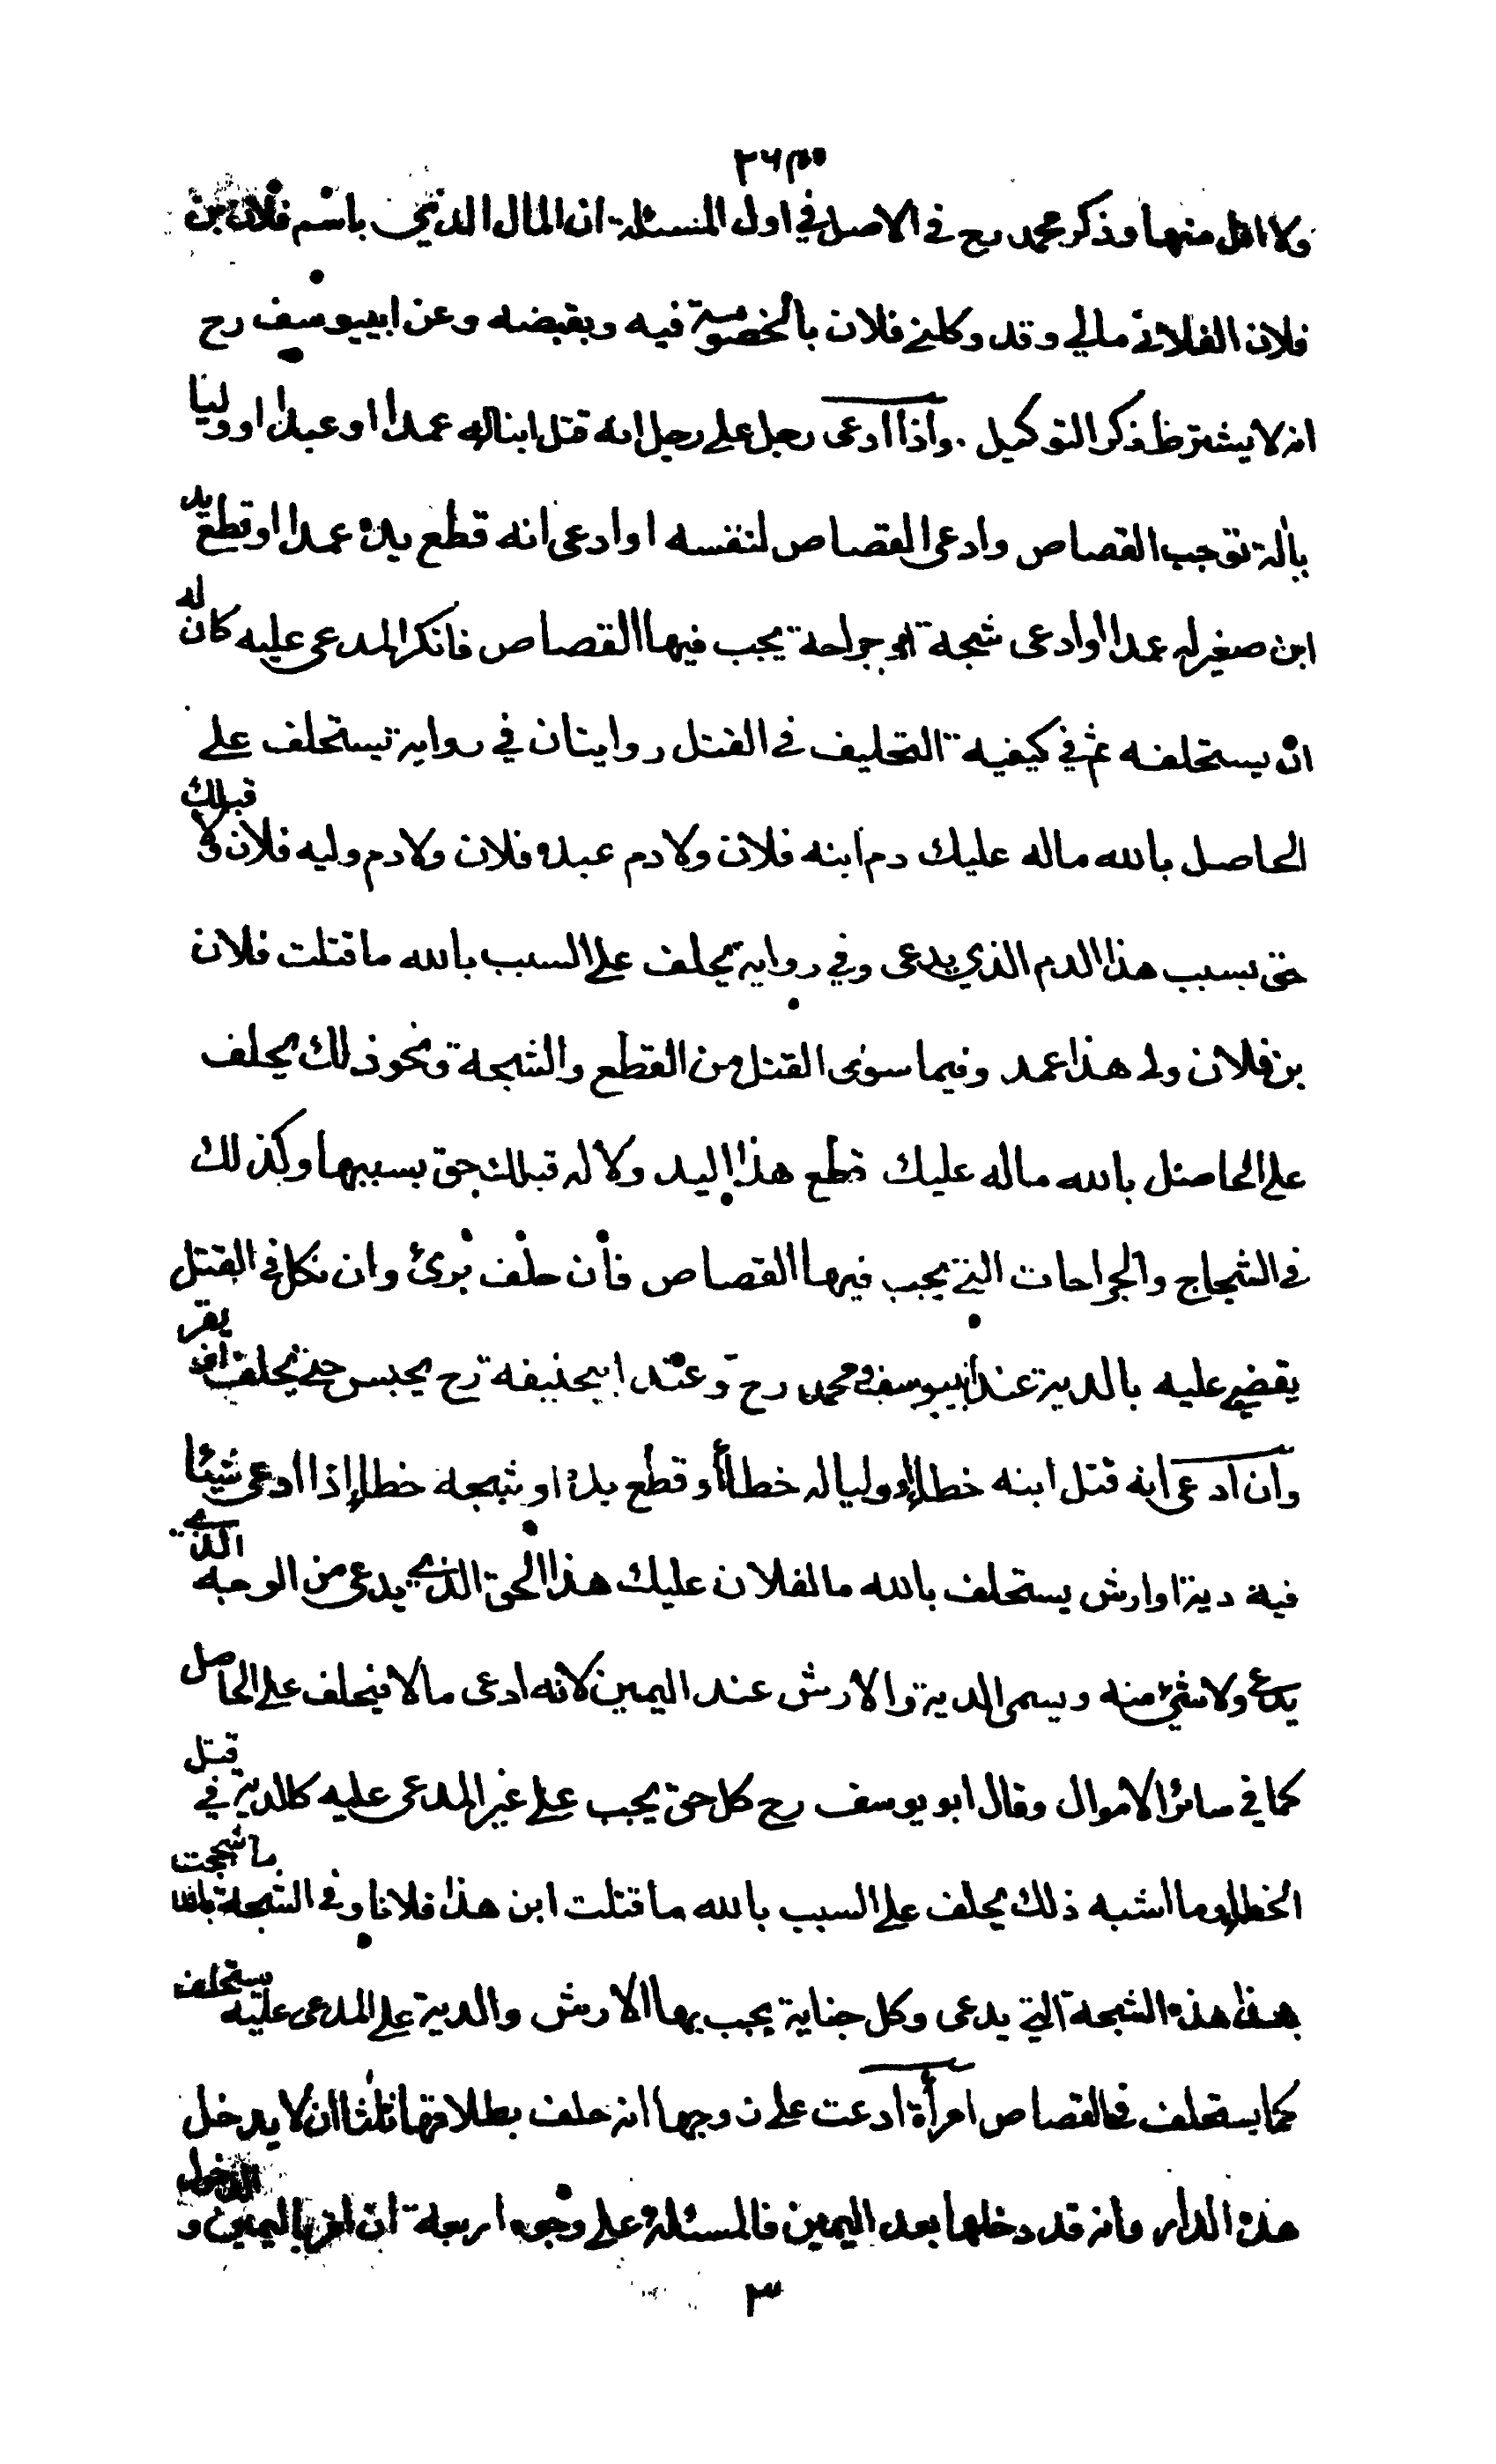 ولا اقل منها وذكر محمد رح في الاصل في اول المسئلة ان المال الذي باسم فلان بن
فلان الفلاني مالي وقد وكلني فلان بالخصومة فيه وبقبضه وعن ابييوسف رح
انه لا يشترط ذكر التوكيل . واذا ادعى رجل على رجل انه قتل ابنا له عمدا او عبدا او وليا
بآلة توجب القصاص وادعى القصاص لنفسه او ادعى انه قطع يده عمدا او قطع يد
ابن صغير له عمدا او ادعى شجة او جراحة يجب فيها القصاص فانكر المدعى عليه كان له
ان يستحلفه ثم في كيفية التحليف في القتل روايتان في رواية يستحلف على
الحاصل بالله ماله عليك دم ابنه فلان ولا دم عبده فلان ولا دم وليه فلان ولا قبلك
حق بسبب هذا الدم الذي يدعى وفي رواية يحلف على السبب بالله ما قتلت فلان
بن فلان ولى هذا عمد وفيما سوى القتل من القطع والشجة ونحو ذلك يحلف
على الحاصل بالله ماله عليك قطع هذا اليد ولا له قبلك حق بسببها وكذلك
في الشجاج والجراحات التي يجب فيها القصاص فان حلف برئ وان نكل في القتل
يقضي عليه بالدية عند ابييوسف ومحمد رح وعند ابيحنيفة رح يحبس حتى يحلف او يقر
وان ادعى انه قتل ابنه خطأ او وليا له خطأ او قطع يده او شجه خطأ اذا ادعى شيئا
فيه دية او ارش يستحلف بالله ما لفلان عليك هذا الحق الذي يدعى من الوجه الذي
يدعى ولا شئ منه ويسمى الدية والارش عند اليمين لانه ادعى مالا فيحلف على الحاصل
كما في سائر الاموال وقال ابو يوسف رح كل حق يجب على غير المدعى عليه كالدية في قتل
الخطأ وما اشبه ذلك يحلف على السبب بالله ما قتلت ابن هذا فلانا وفي الشجة بالله ما شججت
هذا هذه الشجة التي يدعى وكل جناية يجب بها الارش والدية على المدعى عليه يستحلف
كما يستحلف في القصاص امرأة ادعت على زوجها انه حلف بطلاقها ثلثا ان لا يدخل
هذه الدار وانه قد دخلها بعد اليمين فالمسئلة على وجوه اربعة ان اقر باليمين و الدخول
٣